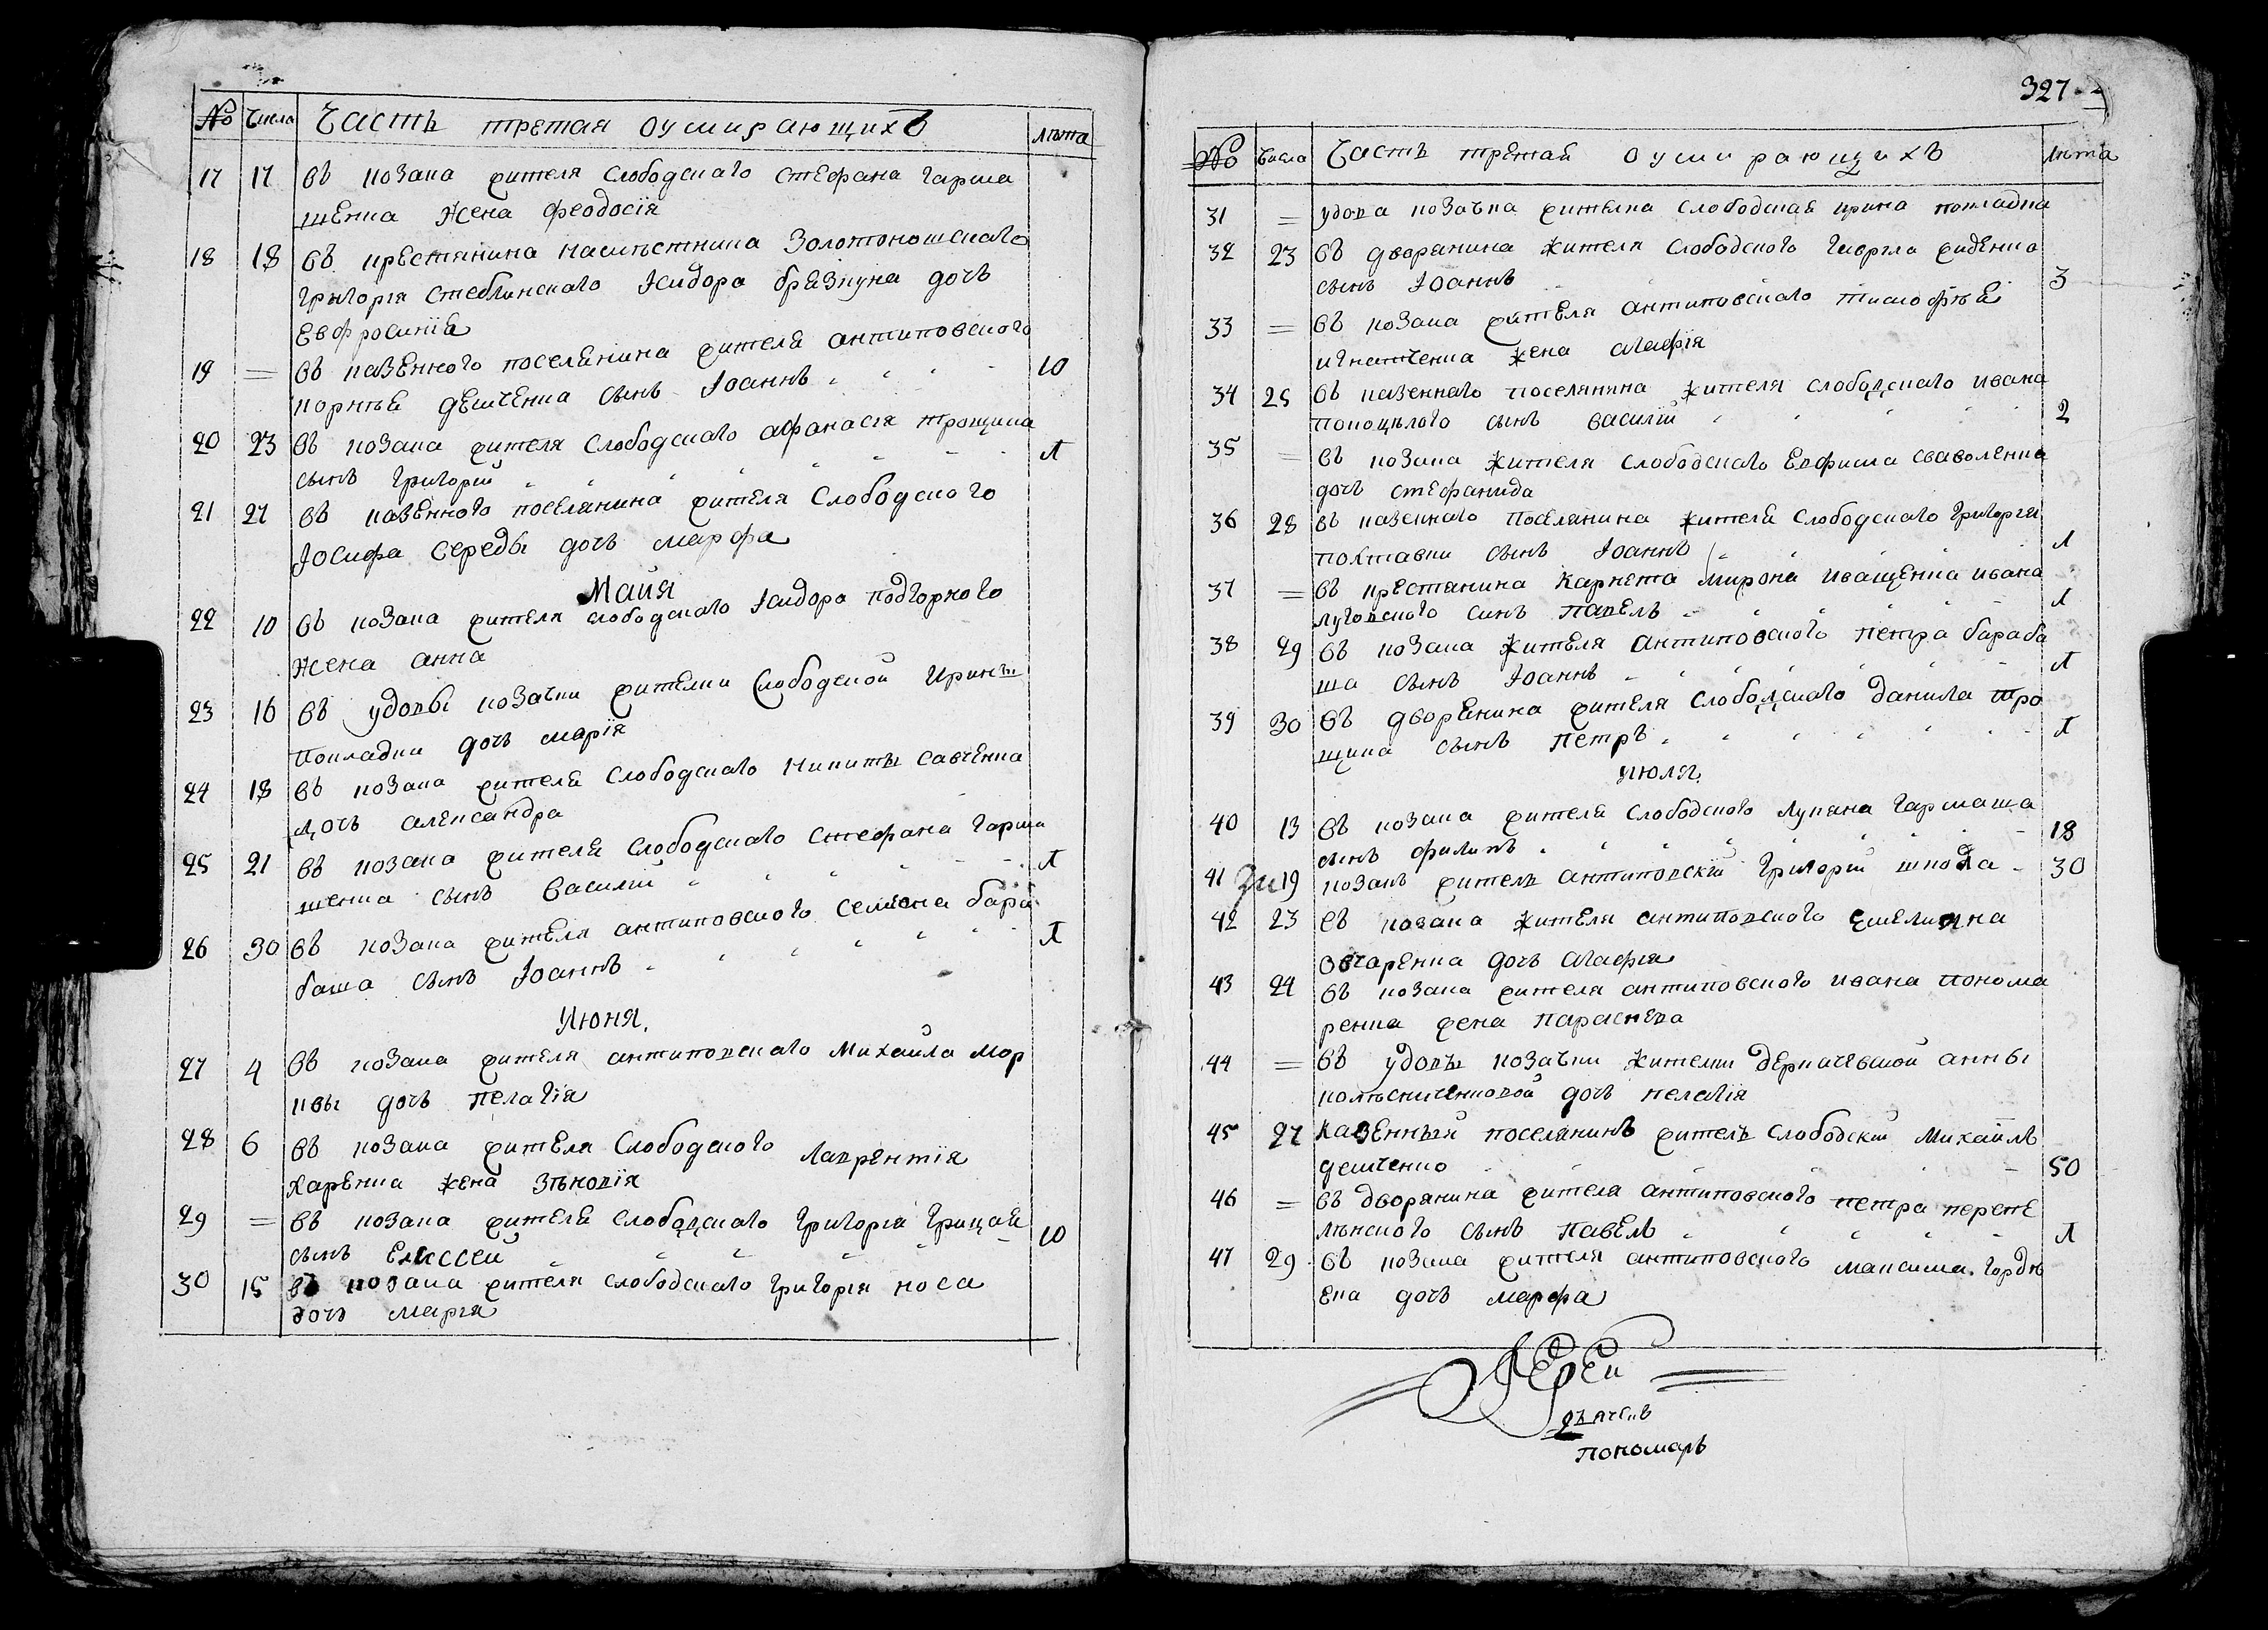 № Числа Часть третая оумирающихъ лѣта
17 17 въ козака жителя слободского стефана гарма
шенка жена феодосїя
18 18 въ крестянина намѣстника золотоношского
григорїя стеблинского Ісидора брязкуна дочь
евфросинїя
19 = въ казенного поселянина жителя антиповского
корнѣя демченка сынъ Іоаннъ 10
20 23 въ козака жителя слободского афанасїя трощина
сынъ григорїй 1
21 27 въ казенного поселянина жителя слободского
Іосифа середы дочь марфа
Майя
22 10 въ козака жителя слободского Ісидора подгорного
жена анна
23 16 въ удовы козачки жителки слободской ирины
покладки дочь марїя
24 18 въ козака жителя слободского никиты савченка
дочь александра
25 21 въ козака жителя слободского стефана гарма
шенка сынъ василїй 1
26 30 въ козака жителя антиповского семиона бара
баша сынъ Іоаннъ 1
Июня
27 4 въ козака жителя антиповского михайла мор
квы дочь пелагїя
28 6 въ козака жителя слободского лаврентїя
харенка жена зѣновїя
29 = въ козака жителя слободского григорїя грицая
сынъ елиссей 10
30 15 въ козака жителя слободского григорїя носа
дочь марїя
327
№ Числа Часть третая оумирающихъ лѣта
31 = удова козачка жителка слободская ирина покладка
32 23 въ дворянина жителя слободского гаврила диденка
сынъ Іоаннъ 3
33 = въ козака жителя антиповского тимофѣя
игнатченка жена агафїя
34 25 въ казенного поселянина жителя слободского ивана
покоцѣлого сынъ василїй 2
35 = въ козака жителя слободского евфима сваволенка
дочь стефанида
36 28 въ казенного поселянина жителя слободского григорїя
полтавки сынъ Іоаннъ 1
37 = въ крестянина карнета мирона иващенка ивана
луговского синъ павелъ 1
38 29 въ козака жителя антиповского петра бараба
ша сынъ Іоаннъ 1
39 30 въ дворянина жителя слободского данила тро
щина сынъ петръ 1
июля
40 13 въ козака жителя слободского лукяна гармаша
сынъ филипъ 18
41 19 козакъ житель антиповскїй григорїй шкода 30
42 23 въ козака жителя антиповского емелияна
овчаренка дочь агафїя
43 24 въ козака жителя антиповского ивана понома
ренка жена параскева
44 = въ удовы козачки жителки деркачевской анны
колѣсниченковой дочь пелагїя
45 27 казенный поселянинъ житель слободскїй михаилъ
демченко 50
46 = въ дворянина жителя антиповского петра перепе
лѣнского сынъ павелъ 1
47 29 въ козака жителя антиповского максима гордѣ
ека дочь марфа
Іерей
дьячокъ
пономаръ